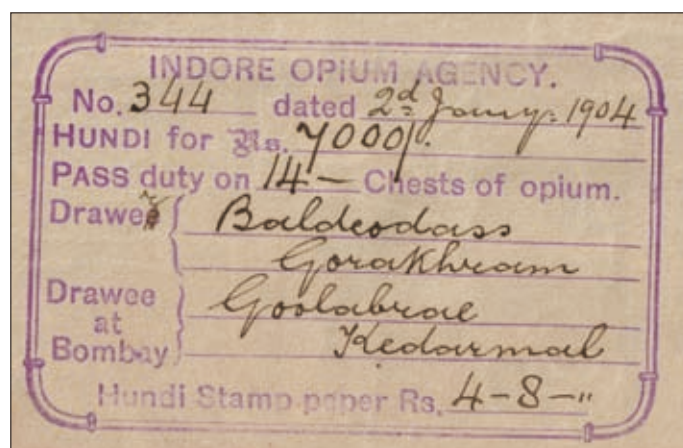 INDORE OPIUM AGENCY.
No. 344 dated 2d Jany. 1904
HUNDI for Rs. 7000/.
PASS duty on 14 — Chests of opium.
Drawer Baldeodass
Gorakhram
Drawee at Bombay Goolabrae
Kedarmal
Hundi Stamp paper Rs. 4-8-"